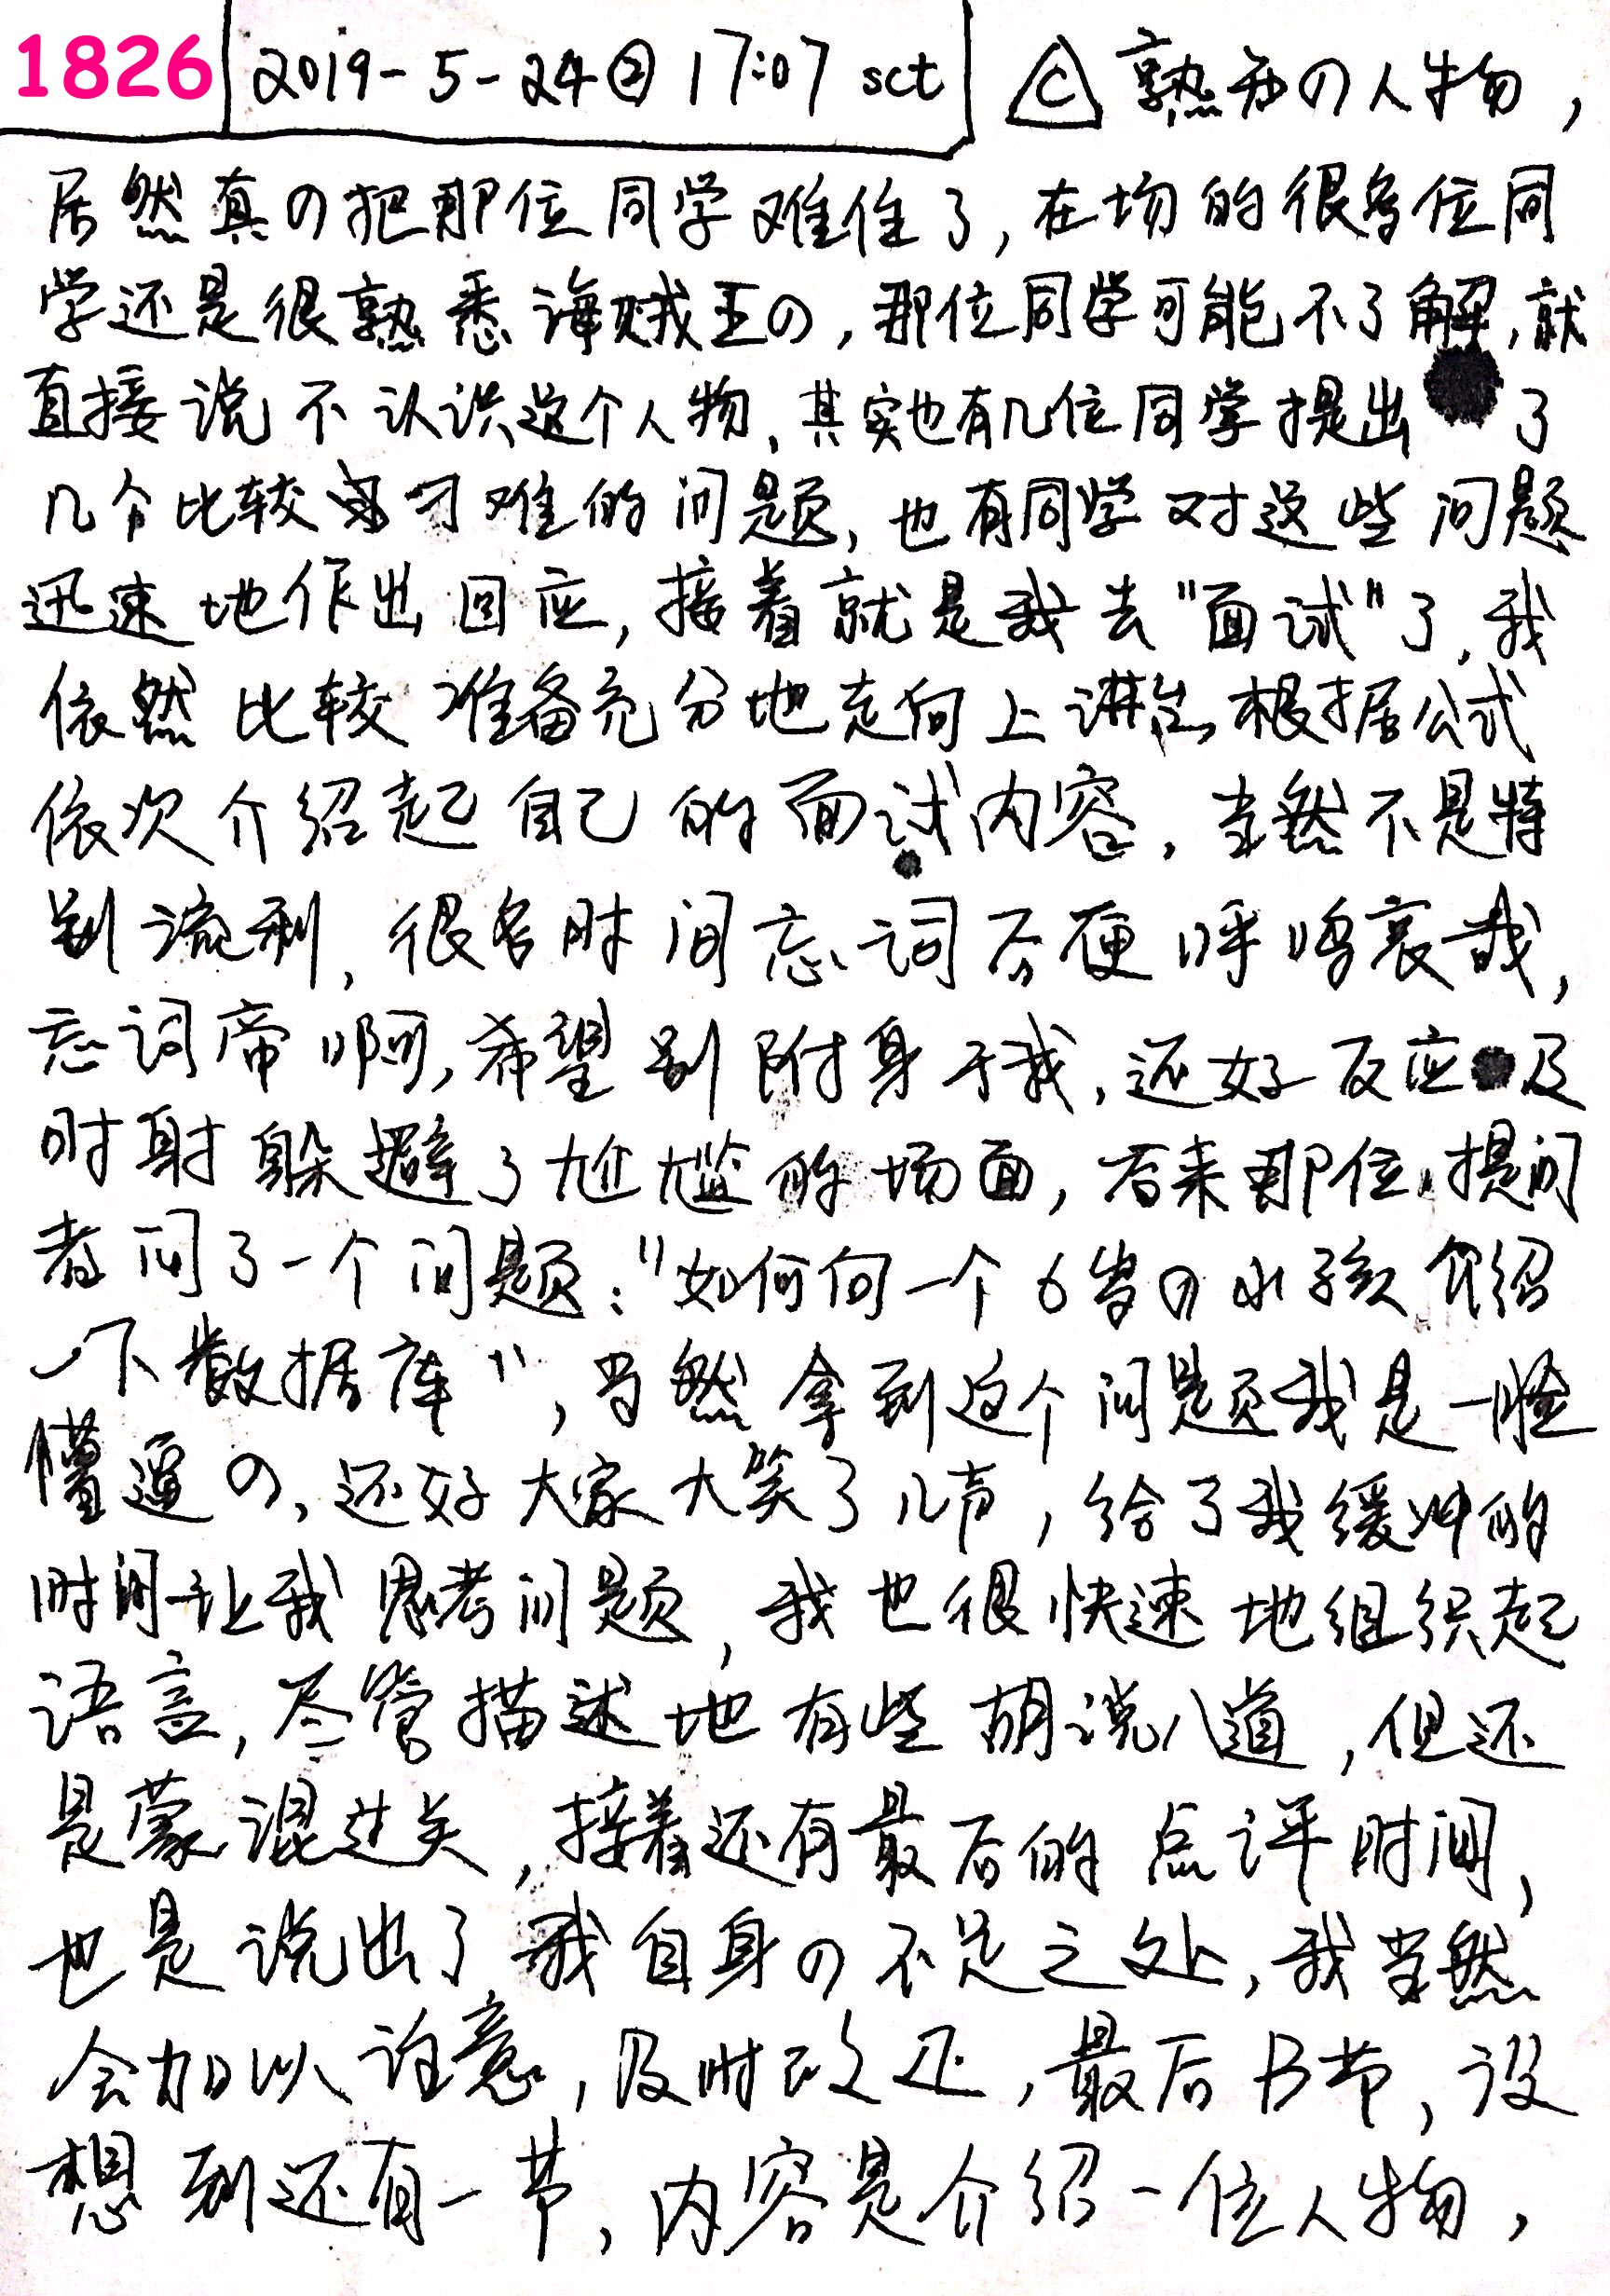 1826 2019-5-24② 17:07 sct Ⓒ 熟悉の人物,
居然真の把那位同学难住了,在场的很多位同
学还是很熟悉海贼王の,那位同学可能不了解,就
直接说不认识这个人物,其实也有几位同学提出了
几个比较刁难的问题,也有同学对这些问题
迅速地作出回应,接着就是我去"面试"了,我
依然比较准备充分地走向上讲台,根据公式
依次介绍起自己的面试内容,当然不是特
别流利,很多时间忘词后便呼呜哀哉,
忘词帝啊,希望别附身于我,还好反应及
时躲避了尴尬的场面,后来那位提问
者问了一个问题:"如何向一个6岁の小孩介绍
一下数据库",当然拿到这个问题我是一脸
懵逼の,还好大家大笑了几声,给了我缓冲的
时间让我思考问题,我也很快速地组织起
语言,尽管描述地有些胡说八道,但还
是蒙混过关,接着还有最后的点评时间,
也是说出了我自身の不足之处,我当然
会加以注意,及时改正,最后B节,没
想到还有一节,内容是介绍一位人物,